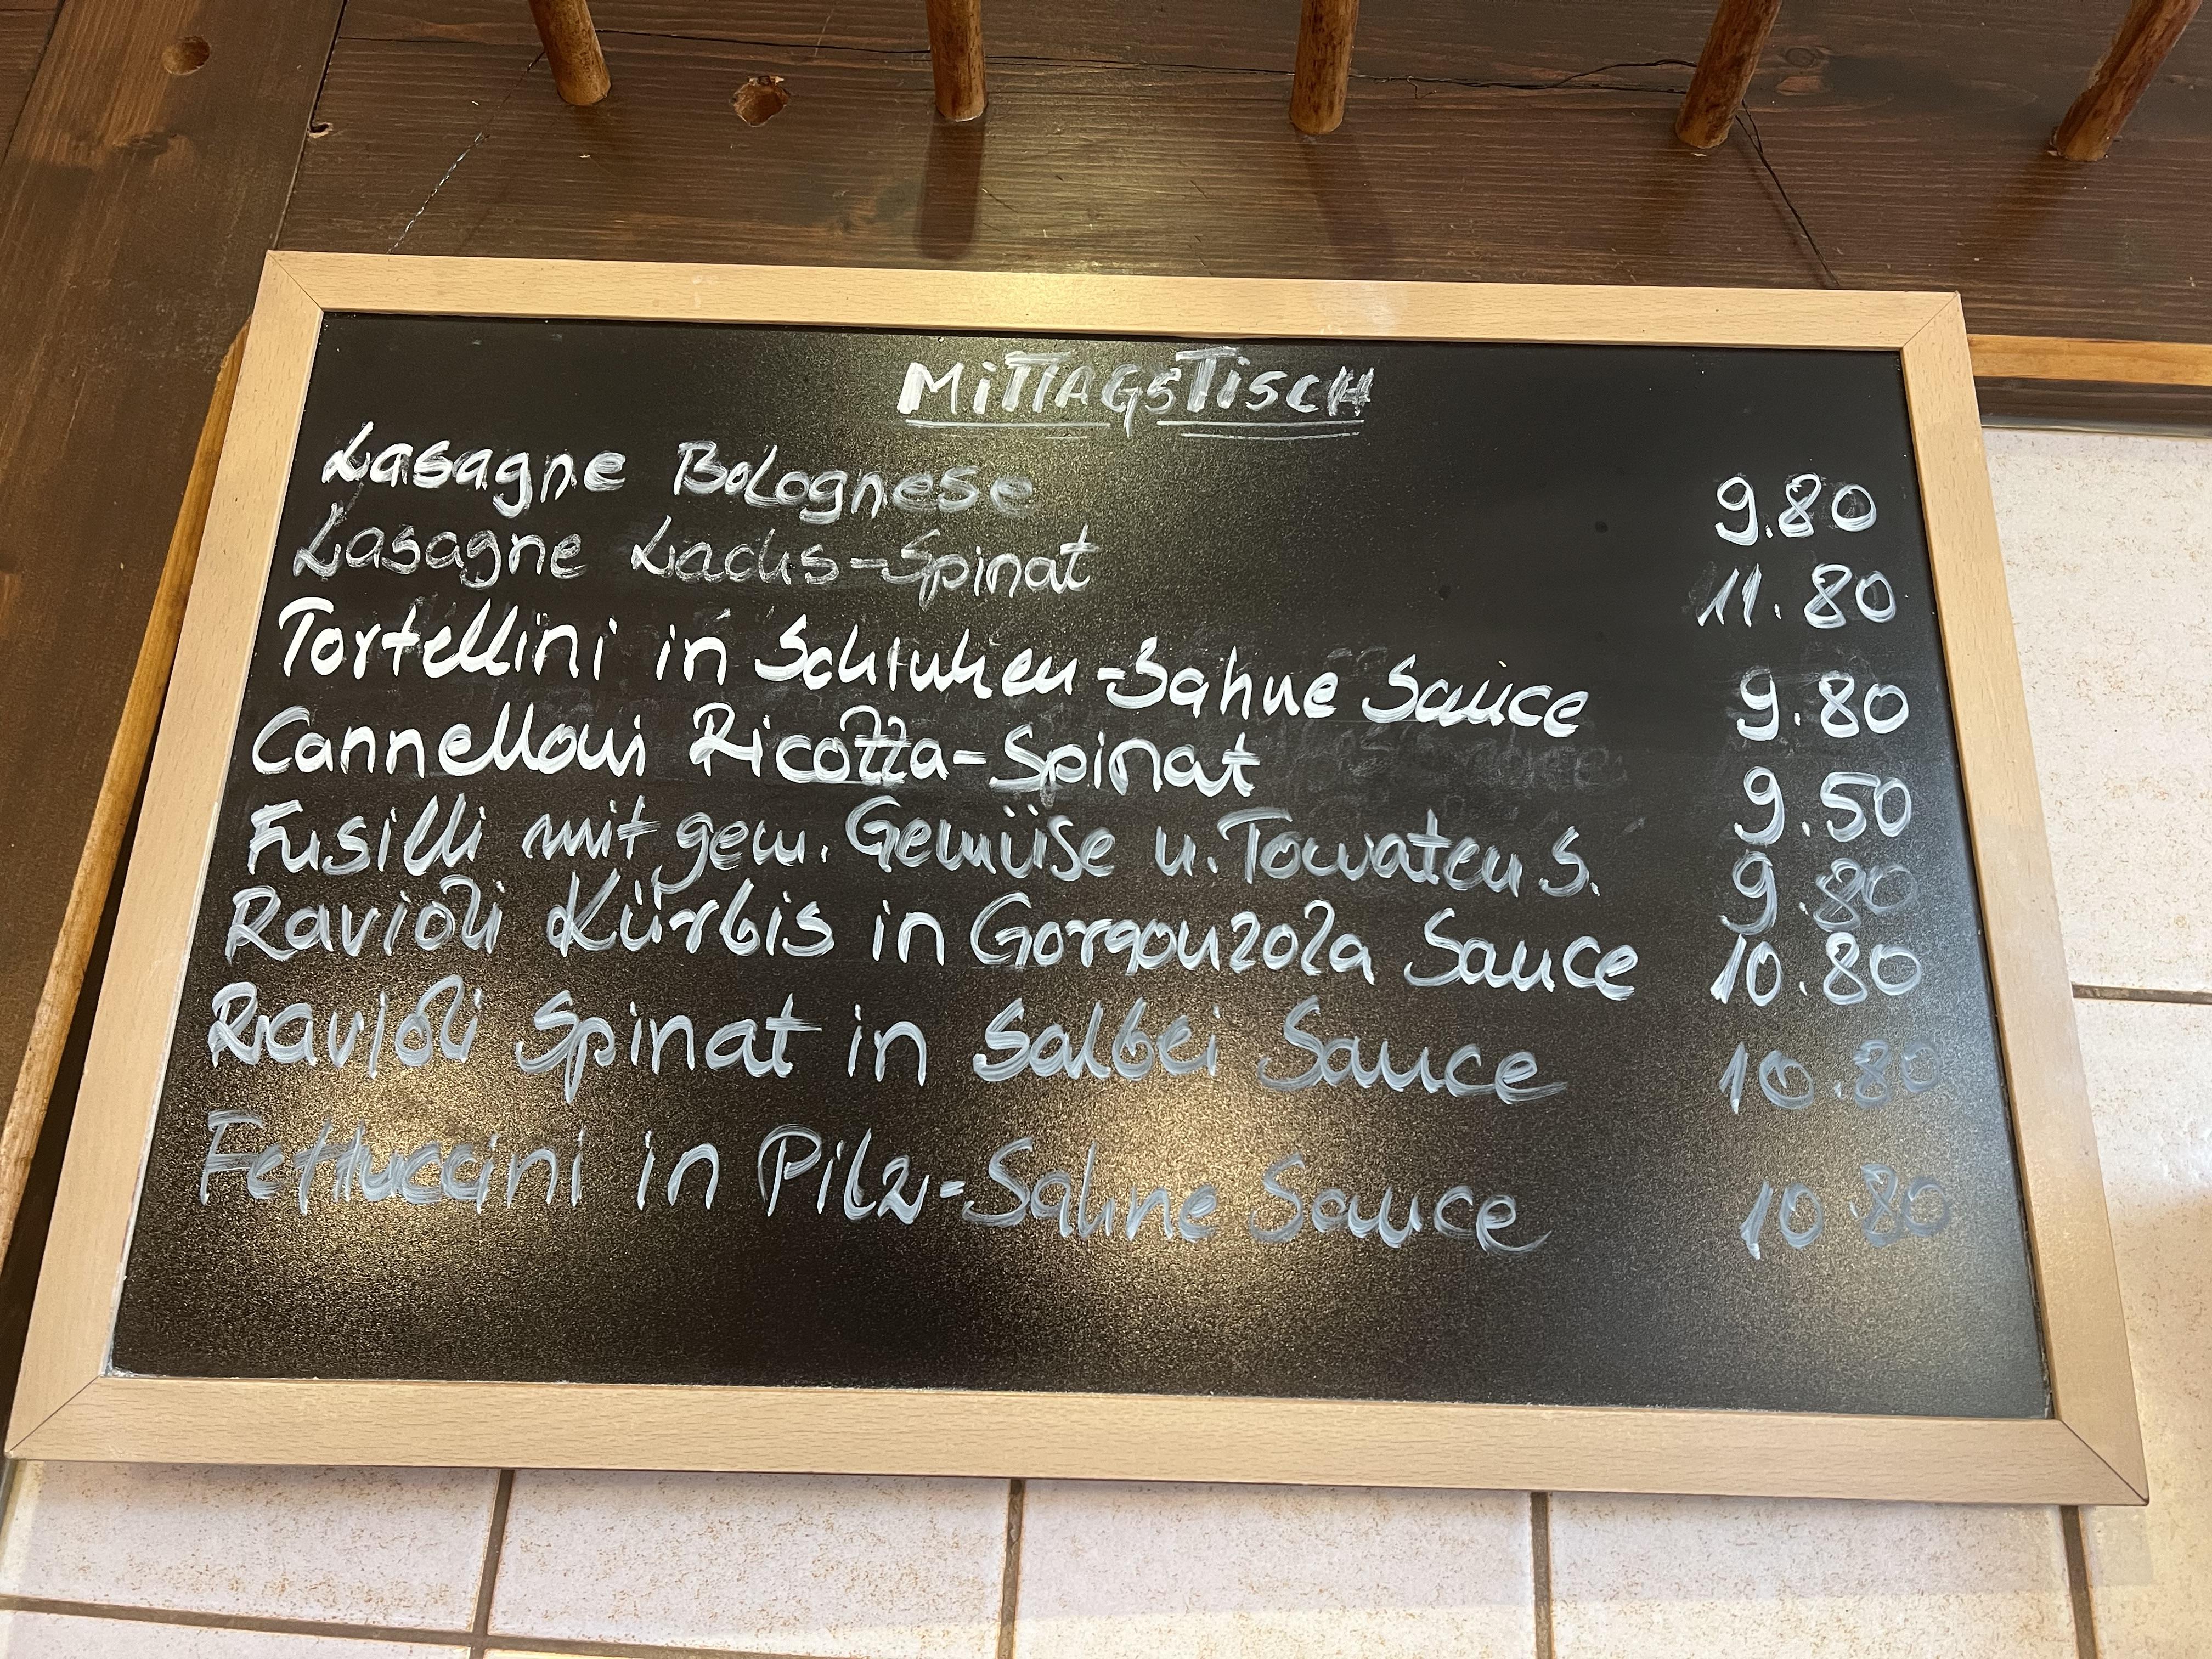 MiTTAGSTiSCH
Lasagne Bolognese 9.80
Lasagne Lachs-Spinat 11.80
Tortellini in Schinken-Sahne Sauce 9.80
Cannelloni Ricotta-Spinat 9.50
Fusilli mit gem. Gemüse u. Tomaten S. 9.80
Ravioli Kürbis in Gorgonzola Sauce 10.80
Ravioli Spinat in Salbei Sauce 10.80
Fettuccini in Pilz-Sahne Sauce 10.80